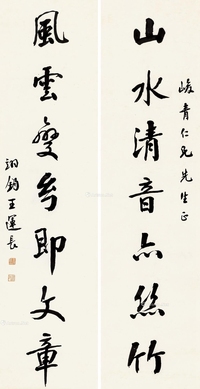 峻青仁兄先生正
山水清音亦絲竹
風雲變態即文章
翊鈞王運長